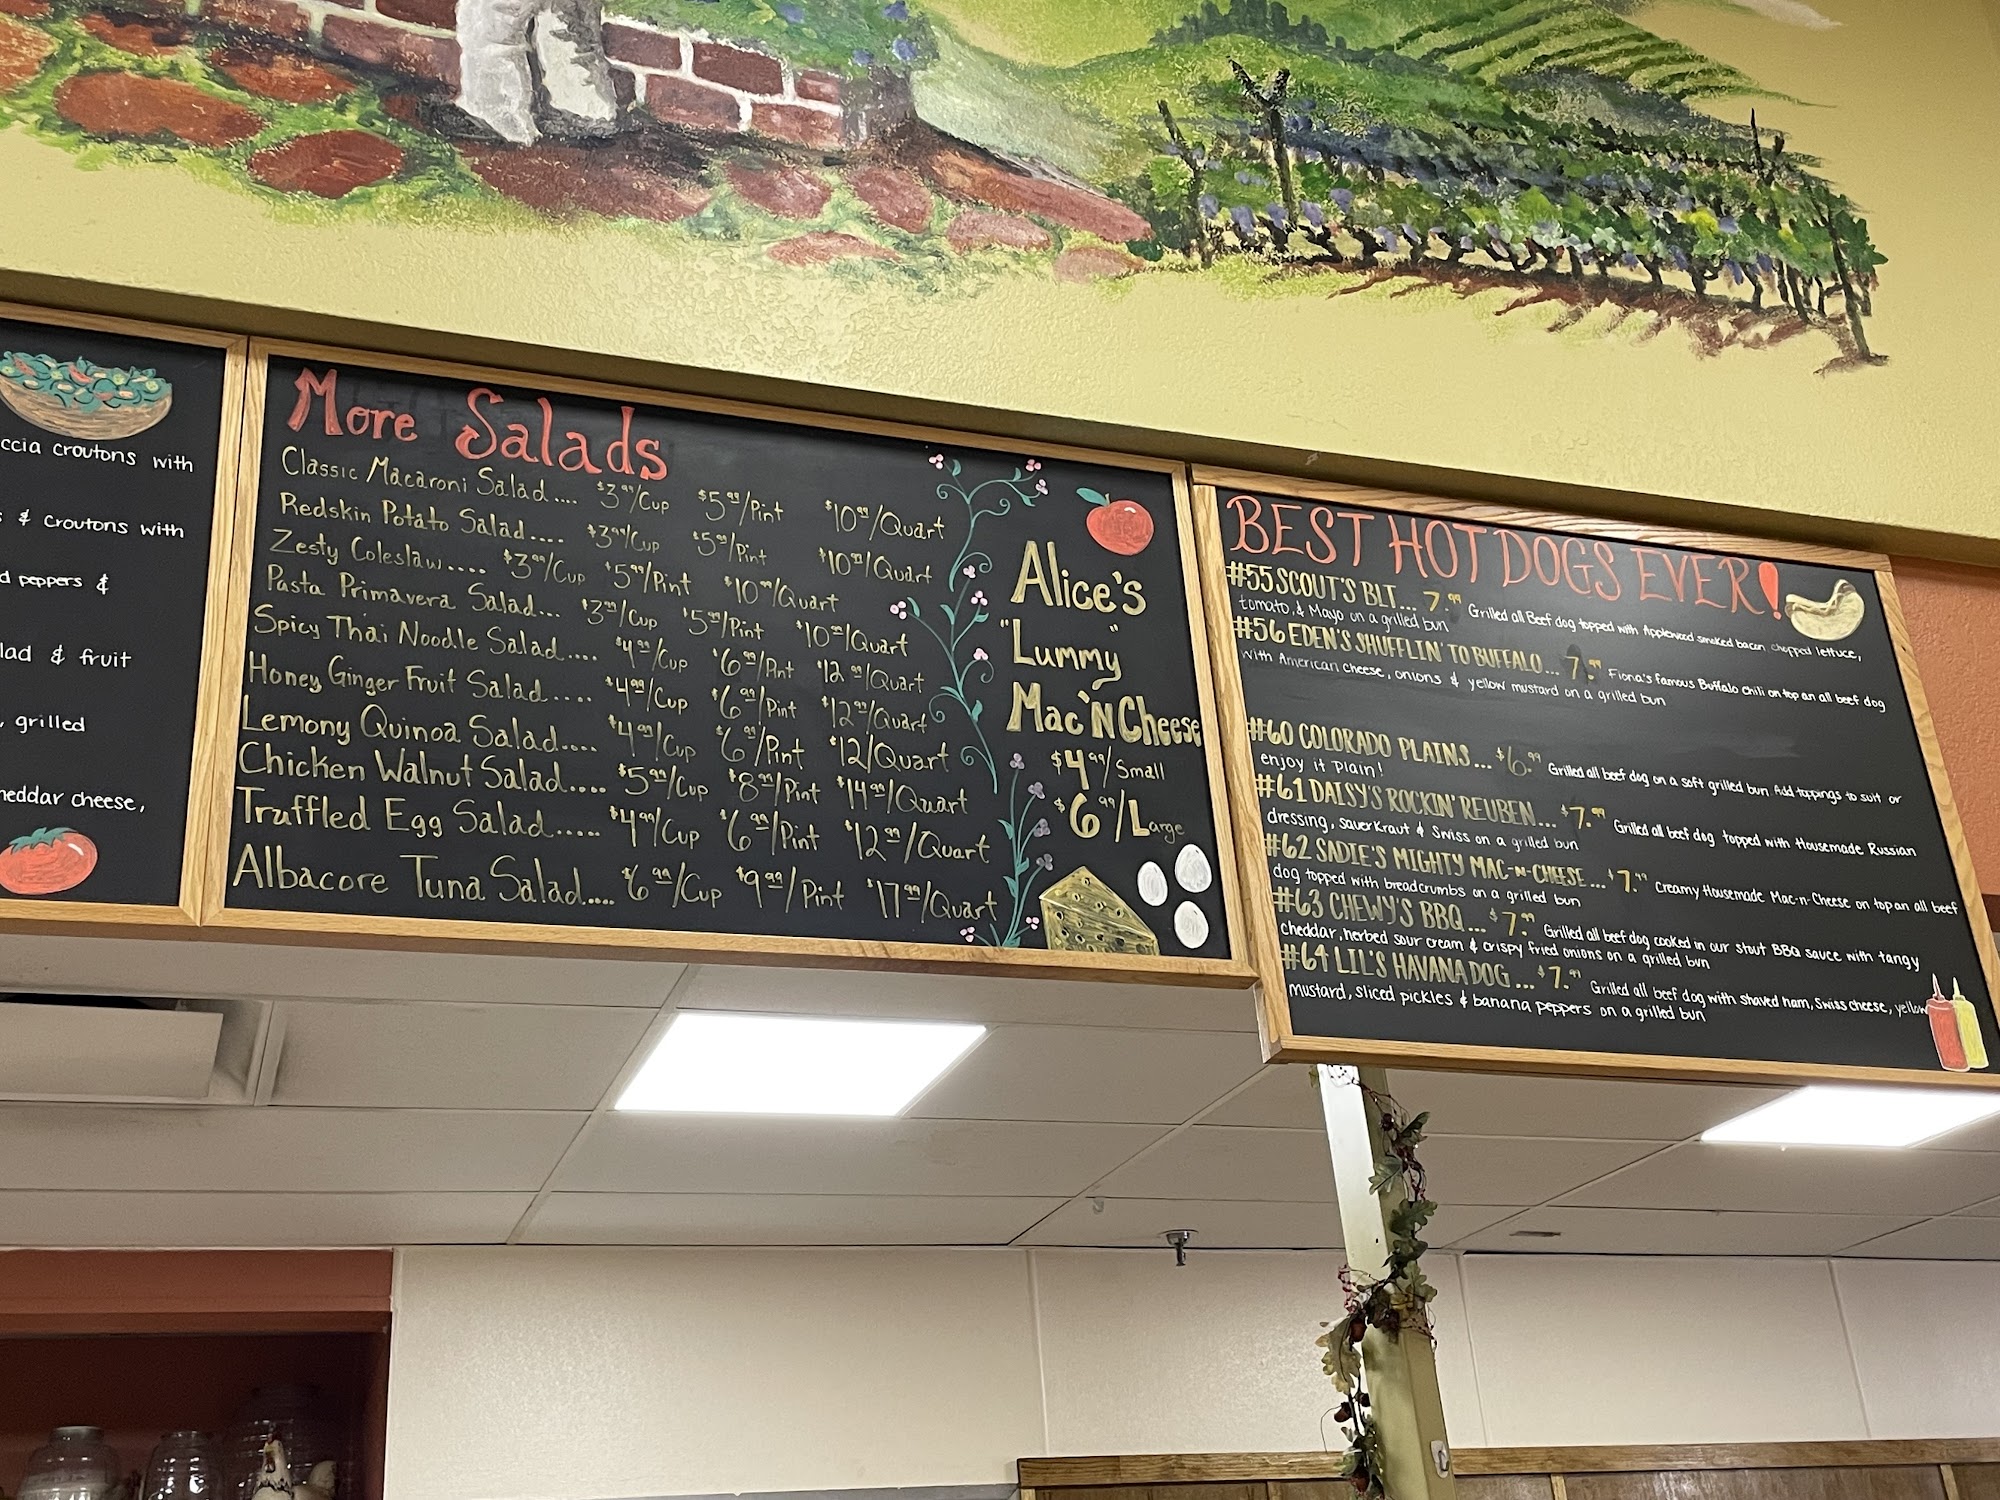 ccia croutons with
& croutons with
d peppers &
lad & fruit
, grilled
heddar cheese,
More Salads
Classic Macaroni Salad.... $3.99/Cup $5.99/Pint $10.99/Quart
Redskin Potato Salad.... $3.99/Cup $5.99/Pint $10.99/Quart
Zesty Coleslaw.... $3.99/Cup $5.99/Pint $10.99/Quart
Pasta Primavera Salad... $3.99/Cup $5.99/Pint $10.99/Quart
Spicy Thai Noodle Salad.... $4.99/Cup $6.99/Pint $12.99/Quart
Honey Ginger Fruit Salad.... $4.99/Cup $6.99/Pint $12.99/Quart
Lemony Quinoa Salad.... $4.99/Cup $6.99/Pint $12/Quart
Chicken Walnut Salad.... $5.99/Cup $8.99/Pint $14.99/Quart
Truffled Egg Salad..... $4.99/Cup $6.99/Pint $12.99/Quart
Albacore Tuna Salad.... $6.99/Cup $9.99/Pint $17.99/Quart
Alice's
"Lummy"
Mac'N Cheese
$4.99/Small
$6.99/Large
BEST HOT DOGS EVER!
#55 SCOUT'S BLT... 7.99 Grilled all Beef dog topped with Applewood smoked bacon, chopped lettuce,
tomato, & Mayo on a grilled bun
#56 EDEN'S SHUFFLIN' TO BUFFALO... 7.99 Fiona's famous Buffalo chili on top an all beef dog
with American cheese, onions & yellow mustard on a grilled bun
#60 COLORADO PLAINS... $6.99 Grilled all beef dog on a soft grilled bun Add toppings to suit or
enjoy it Plain!
#61 DAISY'S ROCKIN' REUBEN... $7.99 Grilled all beef dog topped with Housemade Russian
dressing, sauerkraut & Swiss on a grilled bun
#62 SADIE'S MIGHTY MAC-N-CHEESE... $7.99 Creamy Housemade Mac-n-Cheese on top an all beef
dog topped with breadcrumbs on a grilled bun
#63 CHEWY'S BBQ... $7.99 Grilled all beef dog cooked in our stout BBQ sauce with tangy
cheddar, herbed sour cream & crispy fried onions on a grilled bun
#64 LIL'S HAVANA DOG... $7.99 Grilled all beef dog with shaved ham, Swiss cheese, yellow
mustard, sliced pickles & banana peppers on a grilled bun